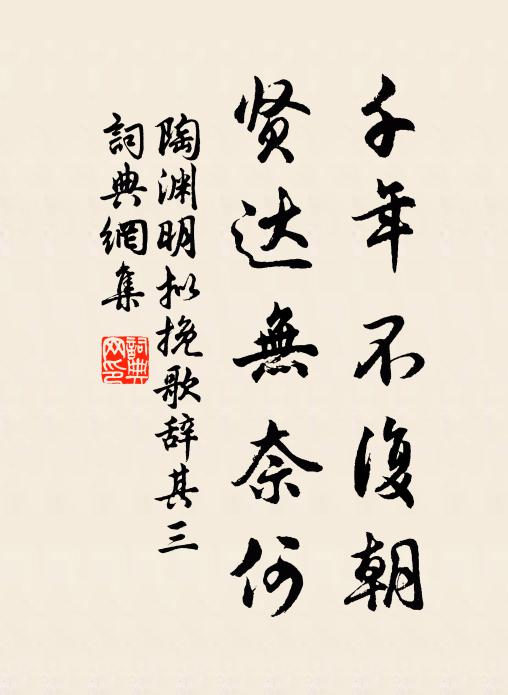 千年不復朝
贤达無奈何
陶渊明拟挽歌辞其三
詞典網集
詞典
网印